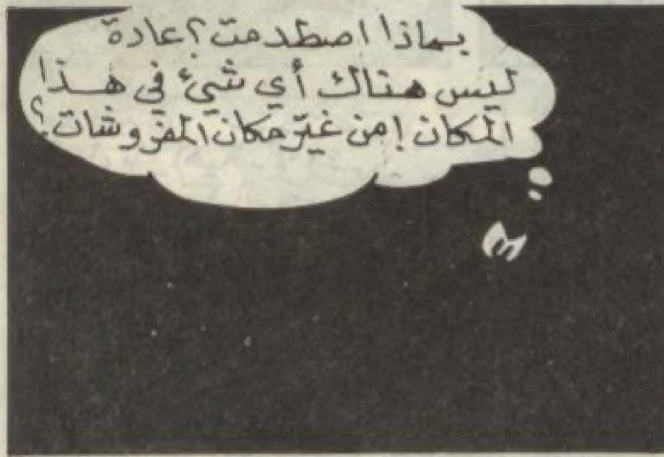 بماذا اصطدمت؟ عادة
ليس هناك أي شيء في هذا
المكان! من غيّر مكان المفروشات؟